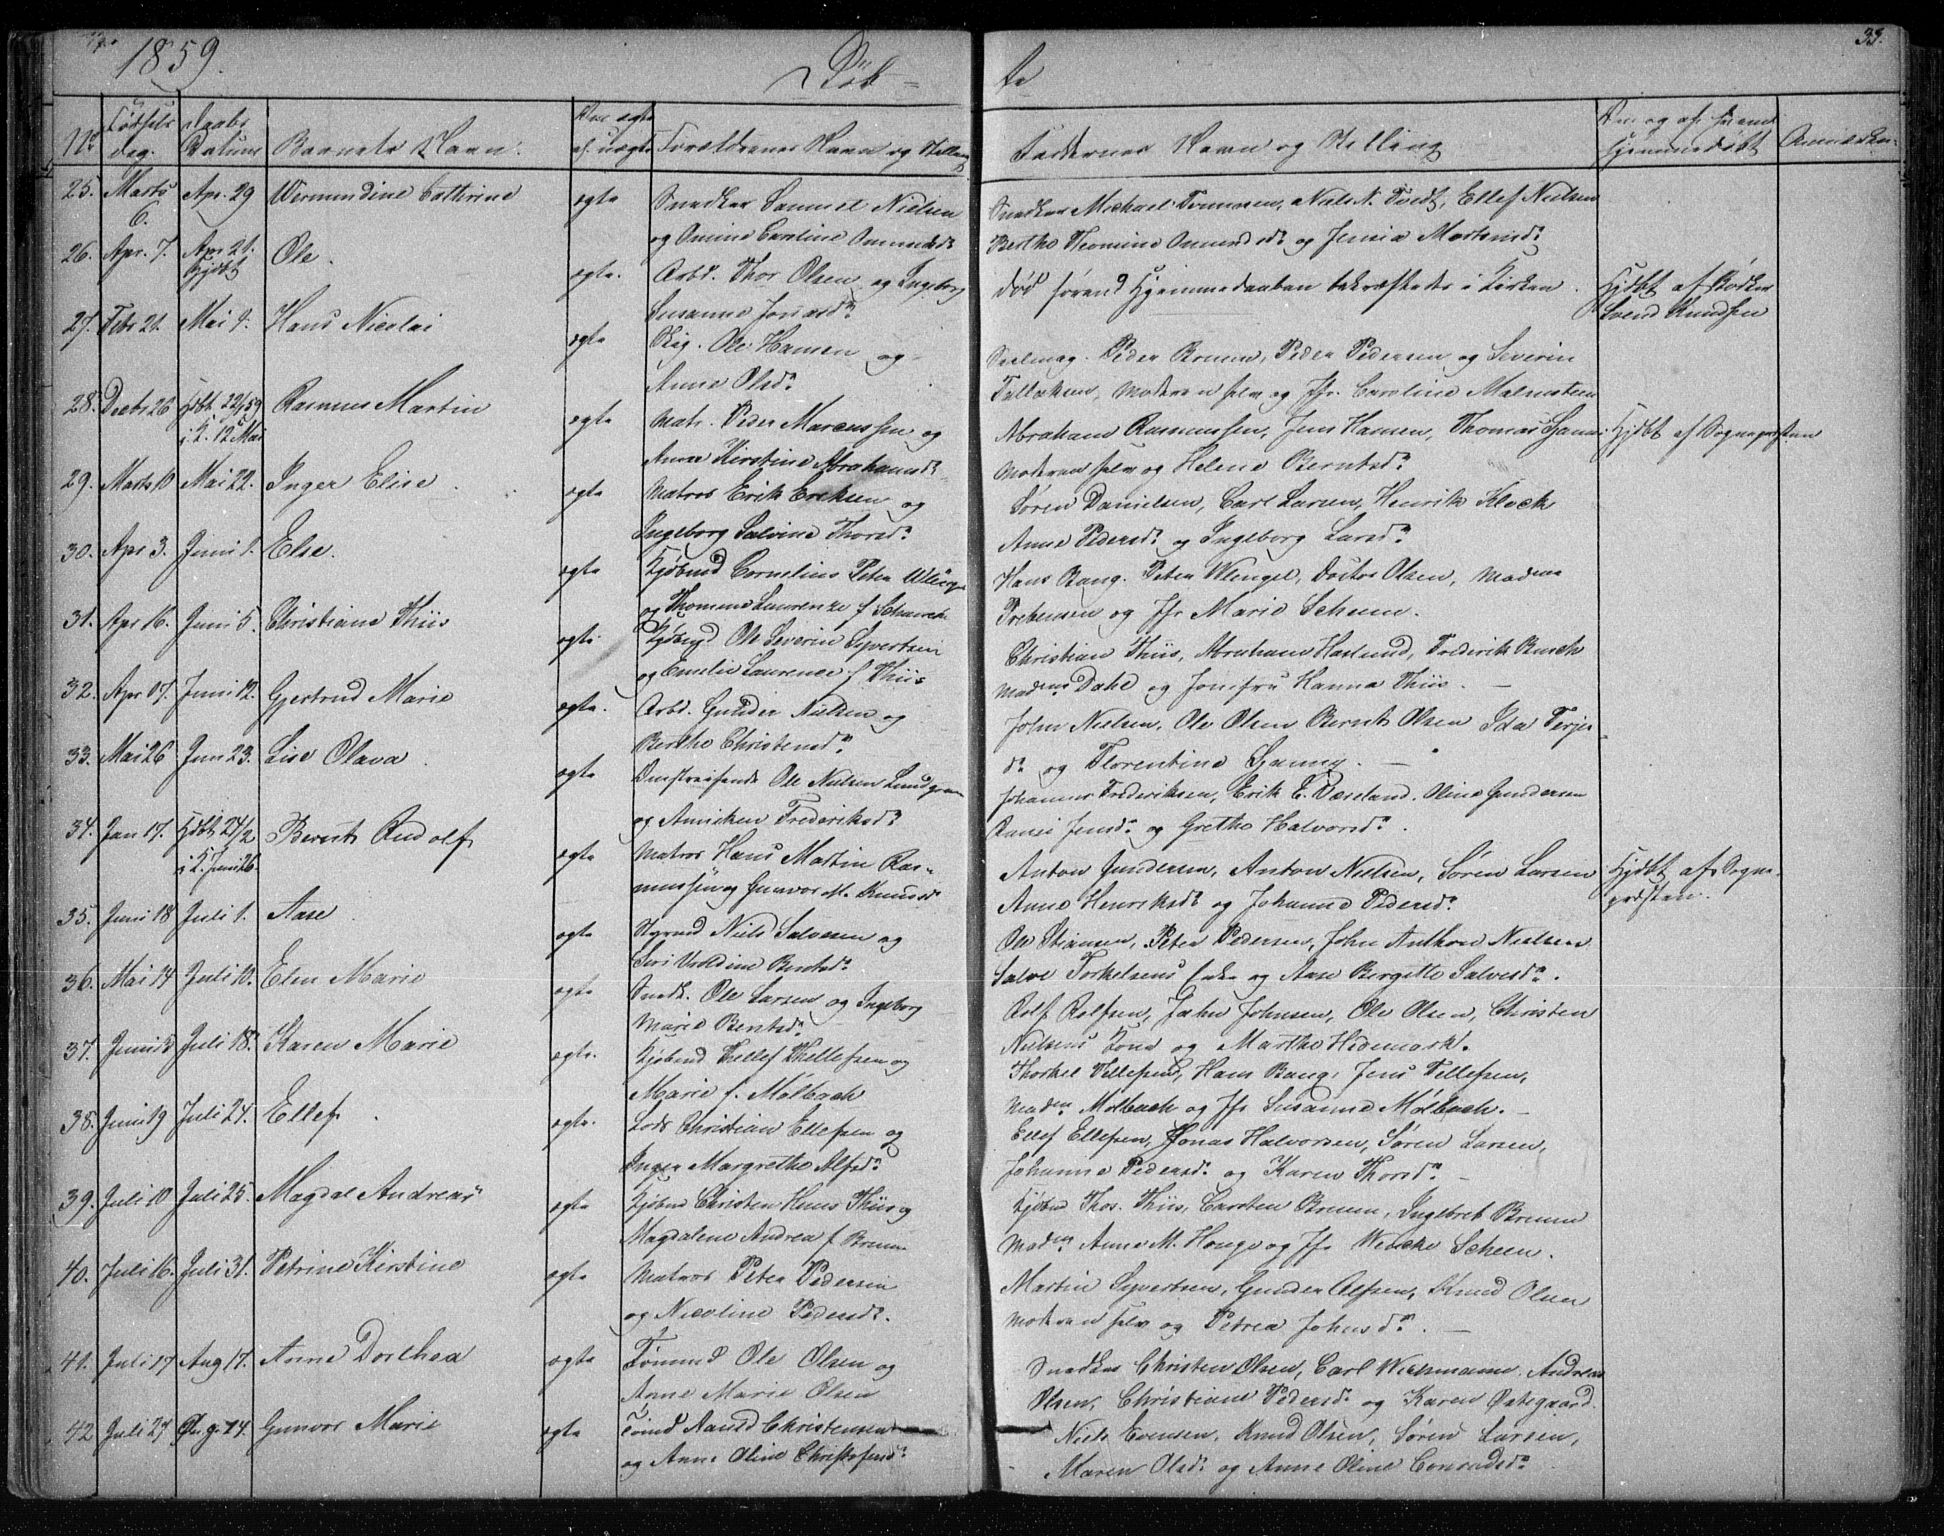 1859.
Døb-
te
33.
No
Fødsels
dag.
Daabs
Datum
Barnets Navn.
Om ægte
el. uægte
Forældrenes Navn og Stilling
Faddernes Navn og Stilling
Om og af hvem
hjemmedøbt
25. Marts 6. Apr. 29 Wermundine Cathrine ægte Snedker Samuel Nielsen
og Omine Caroline
Snedker Michael Tønnesen, Niels N. Tvedt, Ellef Nielsen
Berthe Thomine og Jensia Mortensdr
26. Apr. 7. Apr. 21. hjdbt Ole. ægte. Arbd. Thor Olsen og Ingeborg
Susanne Jonasdr
død førend Hjemmedaaben bekræftedes i Kirken. Hjdbt af Bødker
Svend Knudsen
27. Febr 21. Mai 4. Hans Nicolai ægte Skig. Ole Hansen og
Anne Olsdr
Seilmag. Peder Bruun, Peder Pedersen og Severin
Tellefsen, Moderen selv og Jfr. Caroline Malmsteen
28. Decbr 26 hjdbt 22/1 59 i K. 12 Mai Rasmus Martin ægte Matr. Peder Marcussen og
Anne Kirstine Abrahamsdr
Abraham Rasmussen, Jens Hansen, Thomas Hjdbt af Sognepresten
Moderen selv og Helene Berntsdr
29. Marts 10 Mai 22. Inger Elise ægte Matros Erik Eriksen og
Ingeborg Salvine Thorsdr
Søren Danielsen, Carl Larsen, Henrik Klock
Anne Pedersdr og Ingeborg Larsdr
30. Apr 3. Juni 1. Else. ægte Kjøbmd Cornelius Peter
og Thomine Laurenze f.
Hans Bang. Peter Wengel, Doctor Olsen, Madme
Prebensen og Jfr Marie Scheen.
31. Apr 16. Juni 5. Christiane Thiis ægte. Kjøbmd Ole Severin Syvertsen
og Emelie Laurence f. Thiis
Christian Thiis, Abraham Haslund, Frederik Busch
Madme Dahl og Jomfru Hanna Thiis.
32. Apr 17. Juni 12. Gjertrud Marie ægte. Arbd. Gunder Nielsen og
Berthe Christensdr
John Nielsen, Ole Olsen Bernt Olsen Ida Terjes-
dr og Florentine
33. Mai 26 Juni 23. Lise Olava. ægte Omstreifende Ole Nielsen Lundgren
og Anniken Frederiksdr
Johannes Frederiksen, Erik E. Oline Gundersen
Jensdr og Grethe Halvorsdr.
34. Jan 17. Hjdbt 24/2 i K. Juni 26. Bernt Rudolf ægte Matros Hans Martin Ras-
mussen og Gunvor M. Knudsdr
Anton Gundersen, Anton Nielsen, Søren Larsen Hjdbt af Sogne-
Anne Henriksdr og Johanne Pedersdr presten.
35. Juni 18 Juli 1. Aase. ægte Styrmd Niels Salvesen og
Siri Berntsdr
Ole Stiansen, Peter Pedersen, John Anthon Nielsen
Salve Torkelsens Enke og Aase Bergitte Salvesdr.
36. Mai 14 Juli 10. Elen Marie ægte Snedk. Ole Larsen og Ingeborg
Marie Berntsdr
Rolf Rolfsen, John Johnsen, Ole Olsen, Christen
Nielsens Kone og Marthe Hidemark.
37. Juni Juli 18. Karen Marie ægte. Kjøbmd Tellef Tellefsen og
Marie f. Mølbach
Thorkel Tellefsen, Hans Bang, Jens Tellefsen,
Madme Mølbach og Jfr Susanne Mølbach.
38. Juni 19 Juli 24. Ellef. ægte. Lods Christian Ellefsen og
Inger Margrethe Alfsdr
Ellef Ellefsen, Jonas Halvorsen, Søren Larsen,
Johanne Pedersdr og Karen Thorsdr
39. Juli 10 Juli 25. Magdal Andreas ægte Kjøbmd Christen Hans Thiis og
Magdalene Andrea f. Bruun
Kjøbmd Thos. Thiis, Carsten Bruun, Ingebret Bruun
Madme Anne M. Houge og Jfr Wilcke Scheen.
40. Juli 16. Juli 31. Petrine Kirstine ægte Matros Peter Pedersen
og Nicoline Pedersdr.
Martin Syvertsen, Gunder Alfsen, Knud Olsen
Moderen selv og Petrea Johnsdr.
41. Juli 17 Aug 17. Anne Dorthea ægte Tømmd Ole Olsen og
Anne Marie Olsen
Snedker Christen Olsen, Carl Wichmann, Andreas
Olsen, Christiane Pedersdr og Karen Østegaard.
42 Juli 27 Aug. 14. Gunvor Marie ægte Tømd Aaned Christensen
og Anne Oline Christofersdr
Niels Evensen, Knud Olsen, Søren Larsen,
Maren Olsdr og Anne Oline Conradsdr